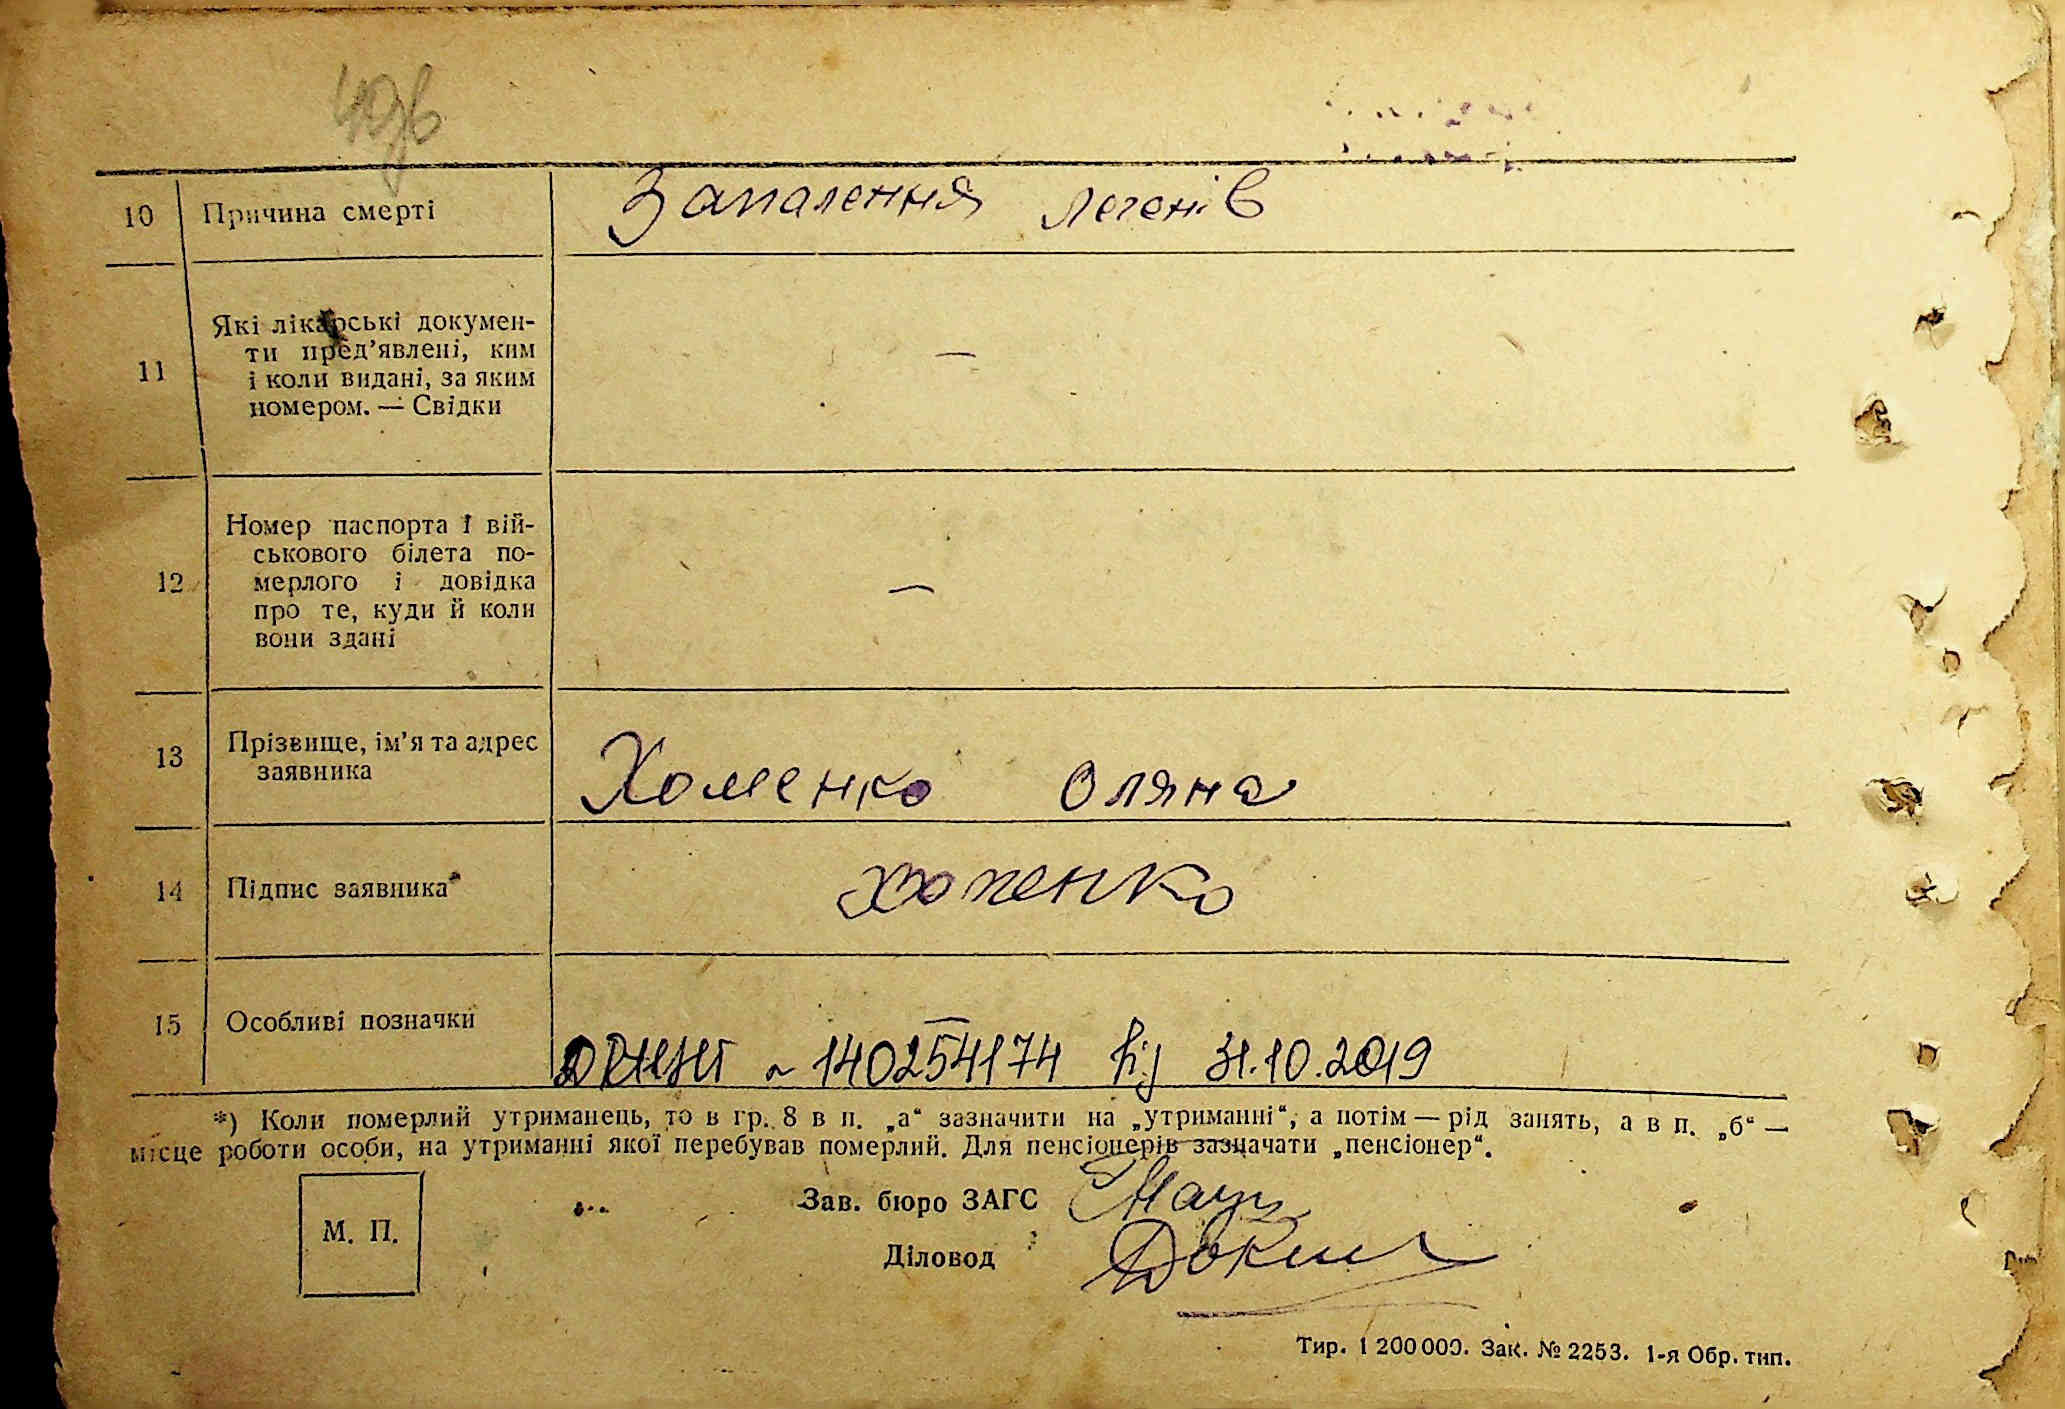 10 Причина смерті Запалення легенів
11 Які лікарські докумен-
ти пред’явлені, ким
і коли видані, за яким
номером. — Свідки
—
12 Номер паспорта і вій-
ськового білета по-
мерлого і довідка
про те, куди й коли
вони здані
—
13 Прізвище, ім’я та адрес
заявника
Хоменко Оляна
14 Підпис заявника Хоменко
15 Особливі позначки —
140254174 від 31.10.2019
*) Коли померлий утриманець, то в гр. 8 в п. „а“ зазначити на „утриманні“, а потім — рід занять, а в п. „б“ —
місце роботи особи, на утриманні якої перебував померлий. Для пенсіонерів зазначати „пенсіонер“.
М. П.
Зав. бюро ЗАГС
Діловод
Тир. 1 200 000. Зак. № 2253. 1-я Обр. тип.